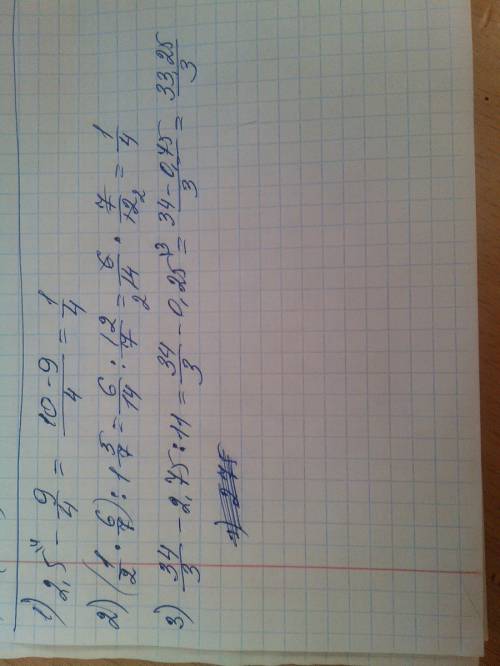 1) 2,5^4 - 9/4 = (10-9)/4 = 1/4
2) (1/2 · 6/7) : 1 5/7 = 6/14 : 12/7 = 6/14 · 7/12 2 = 1/4
3) 34/3 - 2,75 : 11 = 34/3 - 0,25^3 = (34-0,75)/3 = 33,25/3